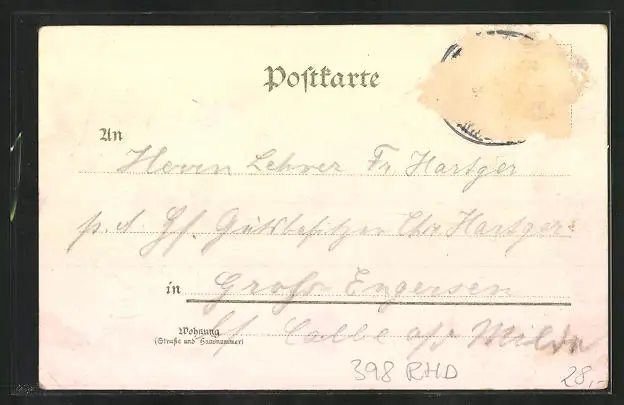 Postkarte
An
Herrn Lehrer Fr. Hartger
p. A. Gutsbesitzer Chr Hartger
in Groß Engersen
Wohnung
(Straße und Hausnummer)
Calbe a/ Milde
398 RHD
28,-